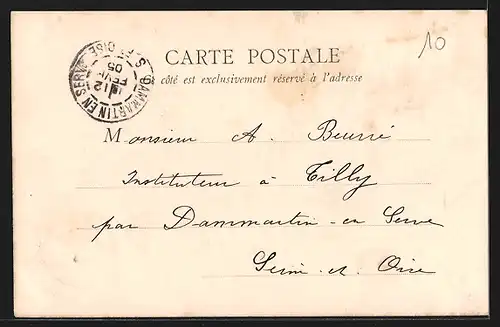 10
CARTE POSTALE
côté est exclusivement réservé à l'adresse
DAMMARTIN EN SERVE S. ET OISE
12
FEVR
05
Monsieur A. Beurré
Instituteur à Tilly
par Dammartin-en Serve
Seine-et-Oise